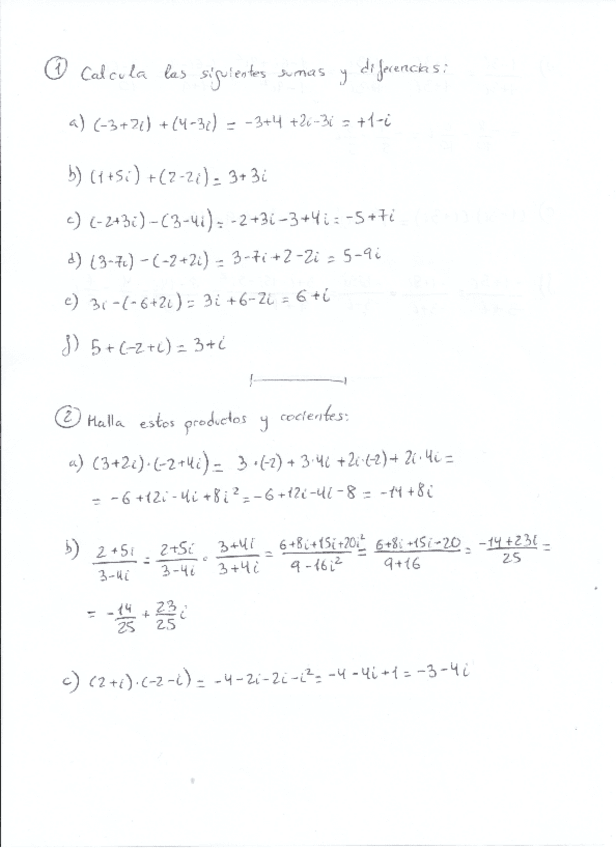 ① Calcula las siguientes sumas y diferencias:
a) (-3+2i) + (4-3i) = -3+4 +2i-3i = +1-i
b) (1+5i) + (2-2i) = 3+3i
c) (-2+3i) - (3-4i) = -2+3i-3+4i = -5+7i
d) (3-7i) - (-2+2i) = 3-7i+2-2i = 5-9i
e) 3i-(-6+2i) = 3i+6-2i = 6+i
f) 5+(-2+i) = 3+i
② Halla estos productos y cocientes:
a) (3+2i)·(-2+4i) = 3·(-2) + 3·4i + 2i·(-2) + 2i·4i =
= -6+12i-4i+8i² = -6+12i-4i-8 = -14+8i
b) (2+5i)/(3-4i) = (2+5i)/(3-4i) · (3+4i)/(3+4i) = (6+8i+15i+20i²)/(9-16i²) = (6+8i+15i-20)/(9+16) = (-14+23i)/25 =
= -14/25 + 23/25 i
c) (2+i)·(-2-i) = -4-2i-2i-i² = -4-4i+1 = -3-4i